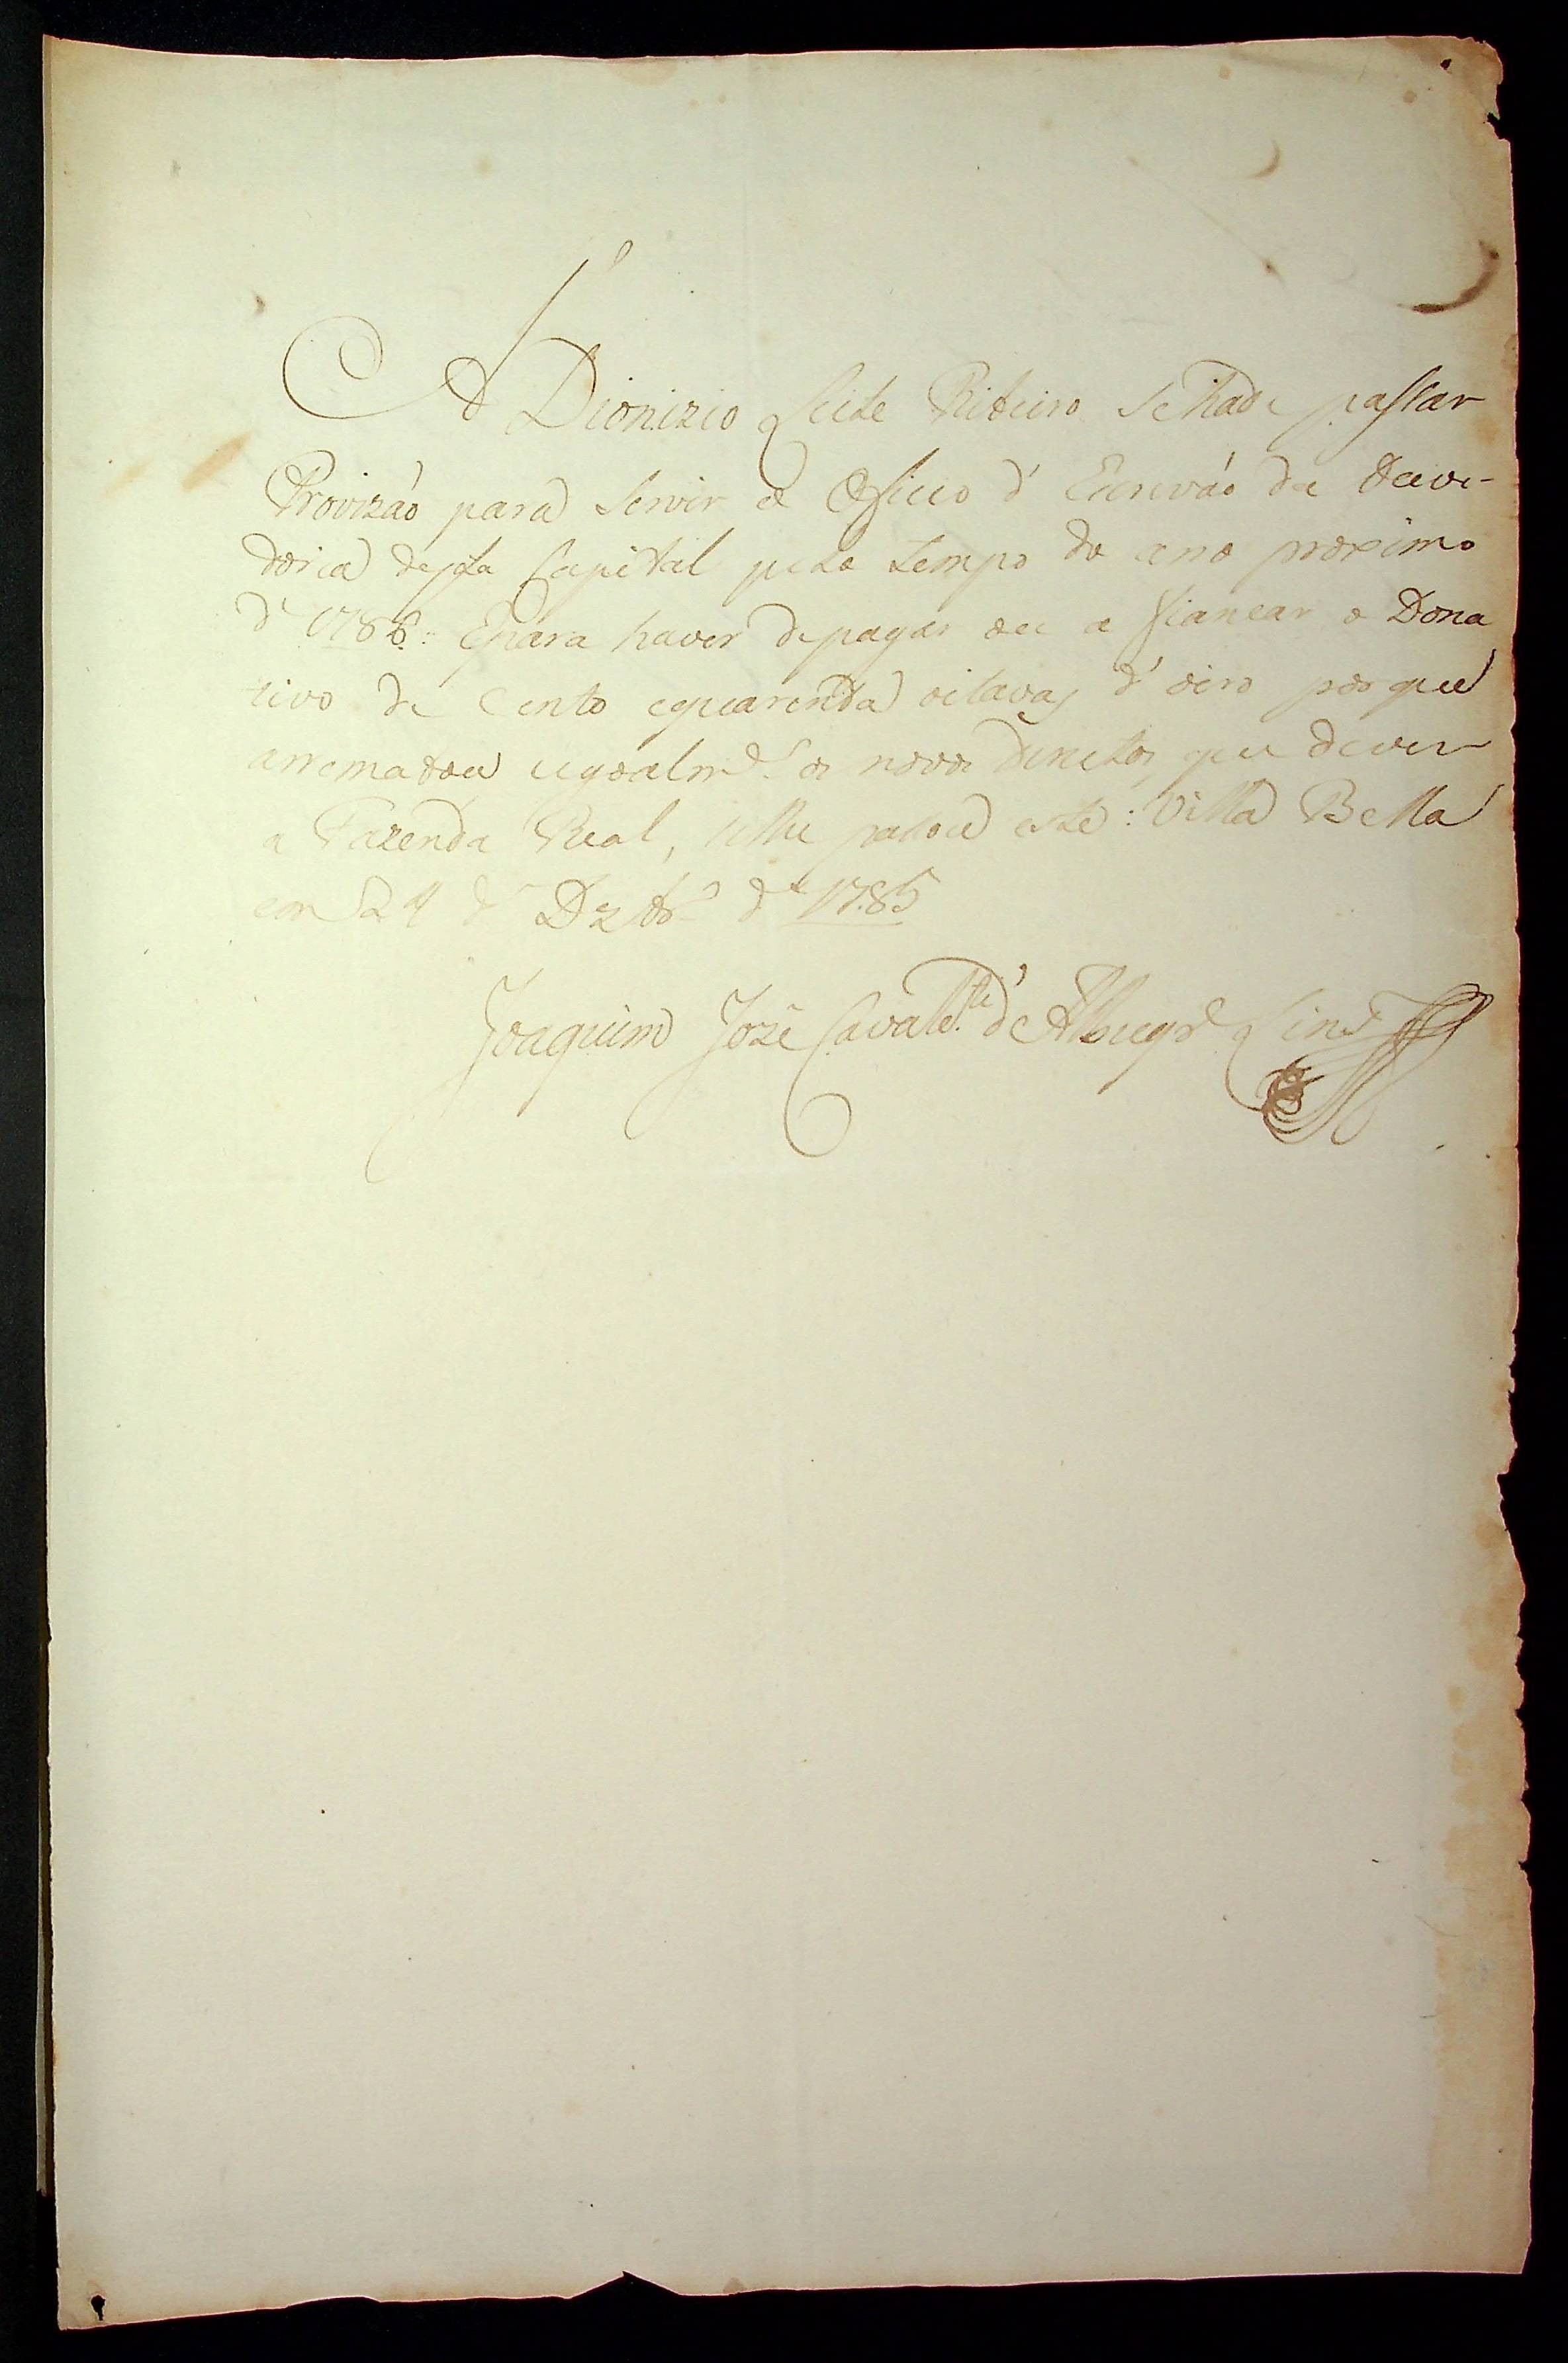 A Dionizio Leite Ribeiro se hade passar
Provizaó para servir o Oficio d' Escrivaó da Ouvi-
doria desta Capital pelo tempo do ano proximo
d' 1786: Epara haver depagar ou a fiancar o Dona
tivo de Cento equarenta oitavas d' oiro por que
arrematou igoalm.e os novos direitos, que dever
a Fazenda Real, selhe pasou este: Villa Bella
em 24 d' Dzbr.o d' 1785
Joaquim José Cavalc.te d' Albuqr.e Lins